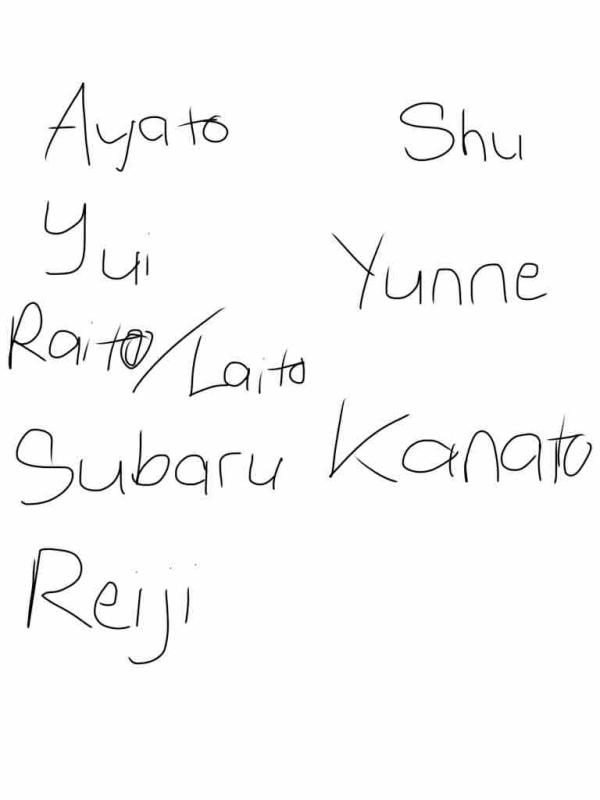 Ayato Shu
Yui Yunne
Raito/Laito
Subaru Kanato
Reiji